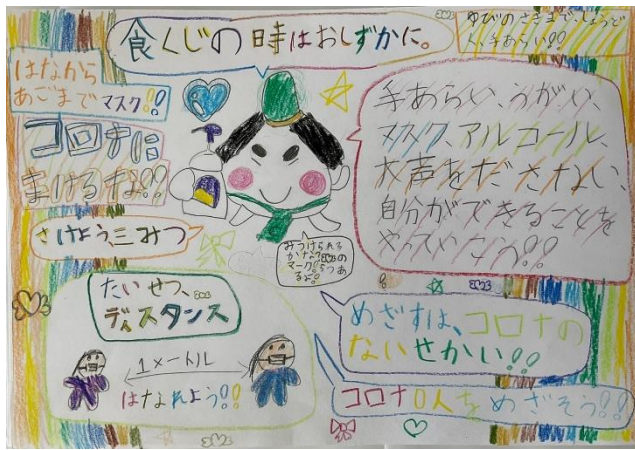 食くじの時はおしずかに。
ゆびのさきまで、しょうど
く、手あらい!!
はなから
あごまでマスク!!
コロナに
まけるな!!
手あらい、うがい、
マスク、アルコール、
大声をださない、
自分ができることを
やって
さけよう三みつ
みつけられる
かな?
マーク
るよ。
たいせつ、
ディスタンス
1メートル
はなれよう!!
めざすは、コロナの
ないせかい!!
コロナ0人をめざそう!!